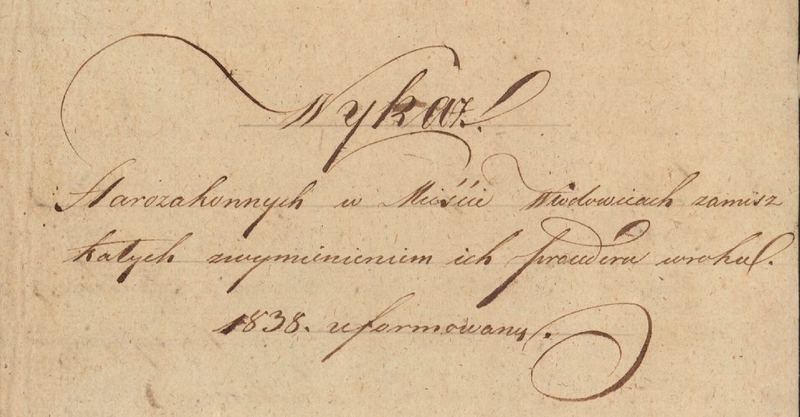 Wykaz.
Starozakonnych w Mieście Włodowicach zamisz
kałych zwymienieniem ich procederu wroku.
1838. uformowany.